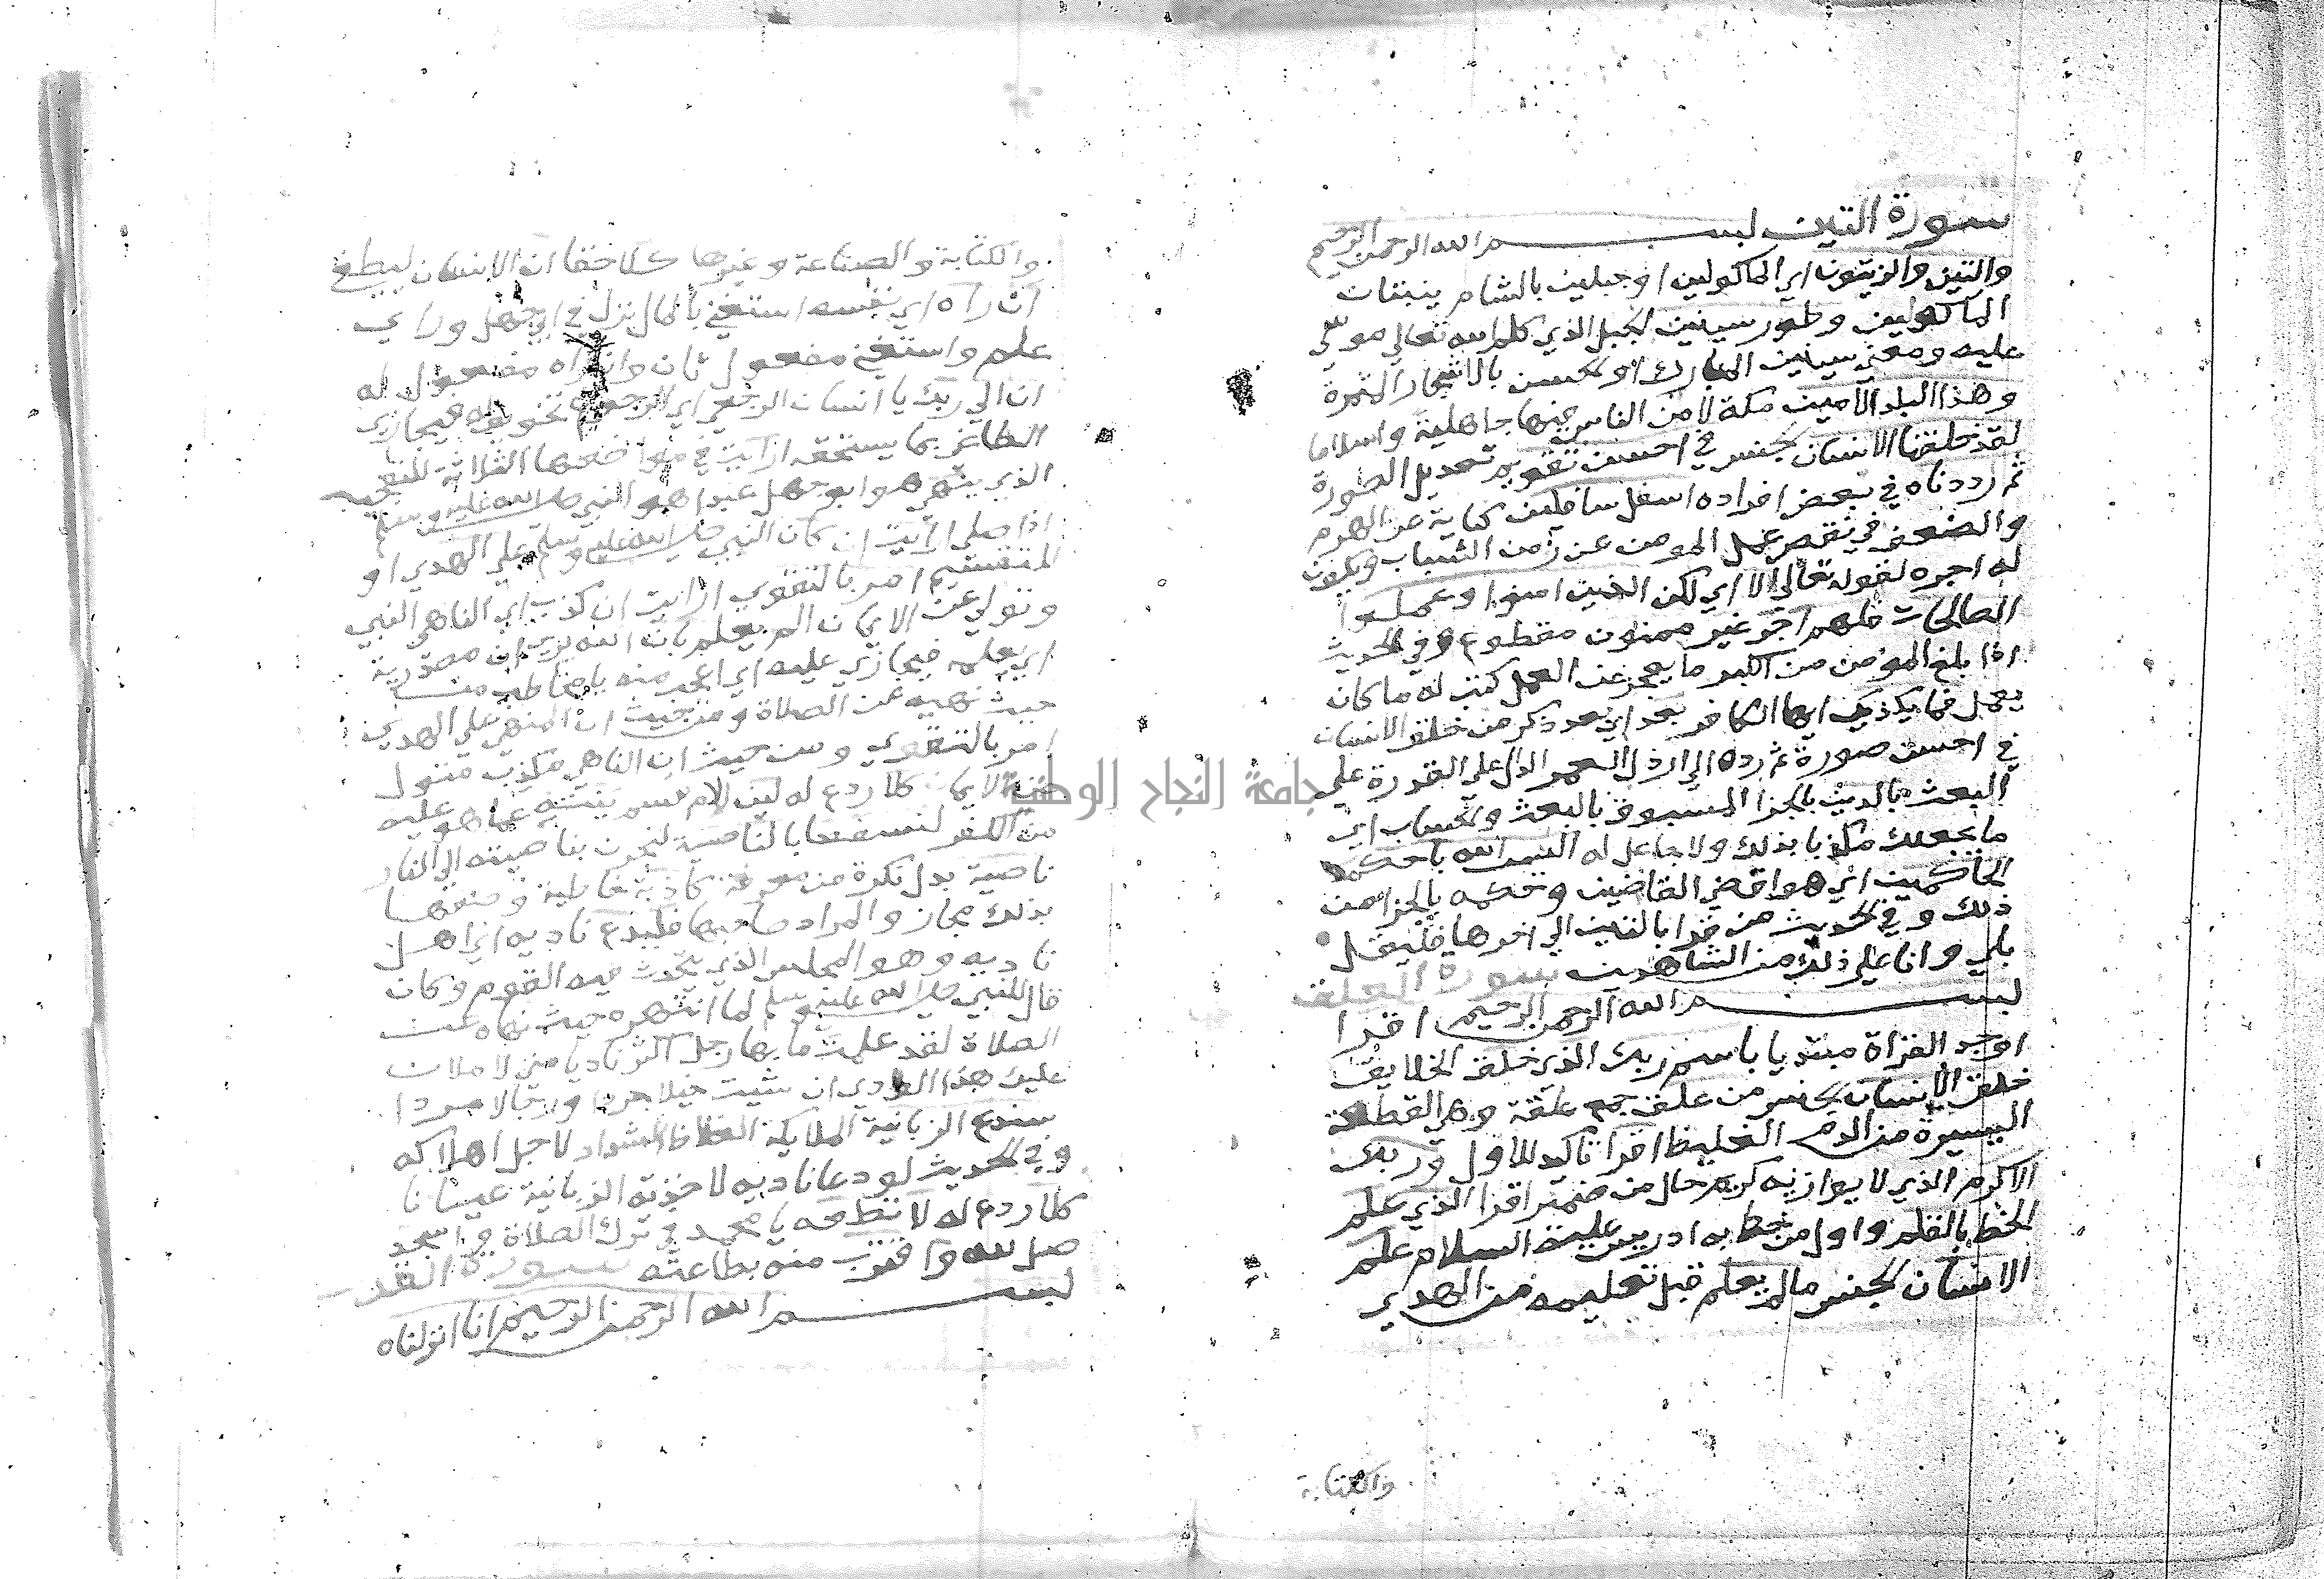 سورة التين بسم الله الرحمن الرحيم
والتين والزيتون اي الماكولين او جبلين بالشام ينبتان
الماكولين وطور سينين الجبل الذي كلم الله تعالي موسي
عليه ومعني سينين المبارك او الحسن بالاشجار المثمرة
وهذا البلد الامين مكة لامن الناس فيها جاهلية واسلاما
لقد خلقنا الانسان الجنس في احسن تقويم تعديل الصورة
ثم رددناه في بعض افراده اسفل سافلين كناية عن الهرم
والضعف فينقص عمل المومن عن زمن الشباب ويكون
له اجره لقوله تعالي الا اي لكن الذين امنوا وعملوا
الصالحات فلهم اجر غير ممنون مقطوع وفي الحديث
اذا بلغ المومن من الكبر ما يعجز عن العمل كتب له ما كان
يعمل فما يكذبك ايها الكافر بعد اي بعد ذكر من خلق الانسان
في احسن صورة ثم رده الي ارذل العمر الدال علي القدرة علي
البعث بالدين بالجزا المسبوق بالبعث والحساب اي
ما يجعلك مكذبا بذلك ولا جاعل له اليس الله باحكم
الحاكمين اي هو اقضي القاضين وحكمه بالجزا من
ذلك وفي الحديث من قرا بالتين الي اخرها فليقل
بلي وانا علي ذلك من الشاهدين سورة العلق
بسم الله الرحمن الرحيم اقرا
اوجد القراة مبتديا باسم ربك الذي خلق الخلايق
خلق الانسان الجنس من علق جمع علقة وهي القطعة
اليسيرة من الدم الغليظ اقرا تاكيد للاول وربك
الاكرم الذي لا يوازيه كريم حال من ضمير اقرا الذي علم
الخط بالقلم واول من خط به ادريس عليه السلام علم
الانسان الجنس ما لم يعلم قبل تعليمه من الهدي
والكتابة
والكتابة والصناعة وغيرها كلا حقا ان الانسان ليطغي
ان راه اي نفسه استغني بالمال نزل في ابي جهل وراي
علم واستغني مفعول ثان وان راه مفعول له
ان الي ربك يا انسان الرجعي اي الرجوع تخويف له فيجازي
الطاغي بما يستحقه ارايت في مواضعها الثلاثة للتعجب
الذي ينهي هو ابو جهل عبدا هو النبي صلي الله عليه وسلم
اذا صلي ارايت ان كان النبي صلي الله عليه وسلم علي الهدي او
للتقسيم امر بالتقوي ارايت ان كذب اي الناهي النبي
وتولي عن الايمان الم يعلم بان الله يري ان مصدرية
اي يعلمه فيجازي عليه اي اعجب منه يا مخاطب من
حيث نهيه عن الصلاة ومن حيث ان المنهي علي الهدي
امر بالتقوي ومن حيث ان الناهي مكذب متول
عن الايمان كلا ردع له لين لام قسم لم ينته عما هو عليه
من الكفر لنسفعا بالناصية لنجرن بناصيته الي النار
ناصية بدل نكرة من معرفة كاذبة خاطية وصفها
بذلك مجاز والمراد صاحبها فليدع ناديه اي اهل
ناديه وهو المجلس الذي يتحدث فيه القوم وكان
قال للنبي صلي الله عليه وسلم لما انتهره حيث نهاه عن
الصلاة لقد علمت ما بها رجل اكثر ناديا مني لاملان
عليك هذا الوادي ان شيت خيلا جردا ورجالا مردا
سندع الزبانية الملايكة الغلاظ الشداد لاجل اهلاكه
وفي الحديث لو دعا ناديه لاخذته الزبانية عيانا
كلا ردع له لا تطعه يا محمد في ترك الصلاة واسجد
صل لله واقترب منه بطاعته سورة القدر
بسم الله الرحمن الرحيم انا انزلناه
جامعة النجاح الوطنية